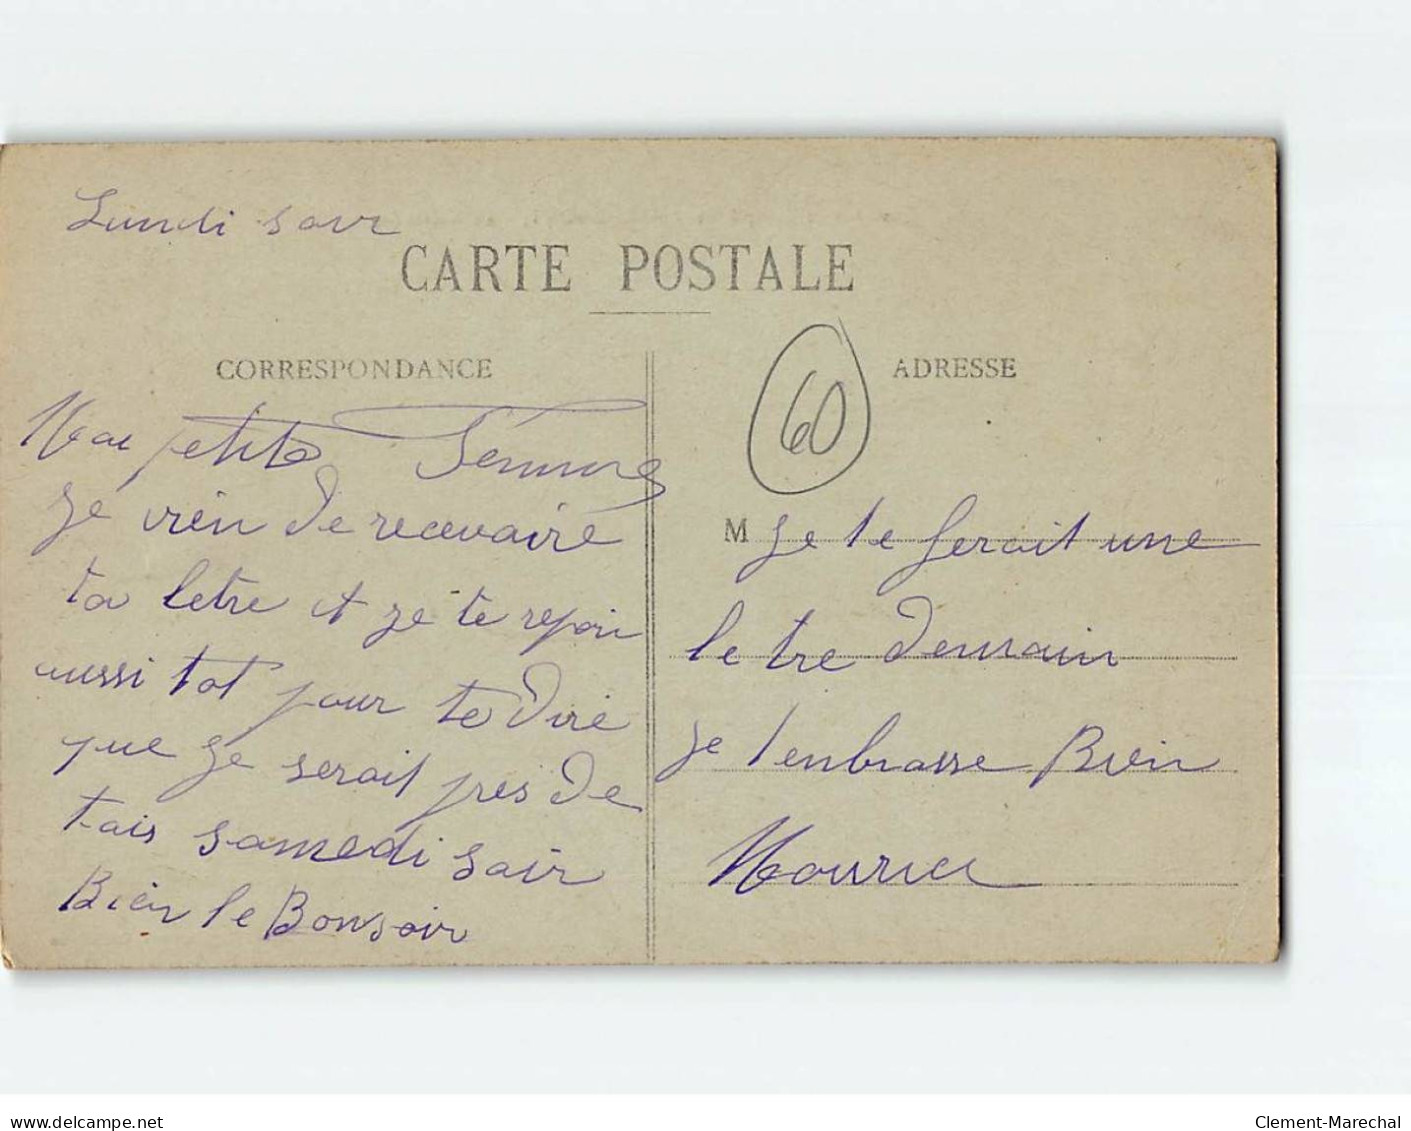 Lundi soir
CARTE POSTALE
CORRESPONDANCE
petite
je vien de recevaire
ta letre et je te repon
aussi tot pour te dire
que je serait pres de
tais samedi soir
Bien le Bonsoir
60
ADRESSE
M je te ferait une
letre demain
je t'enbrasse Bien
Mourice
www.delcampe.net
Clement-Marechal